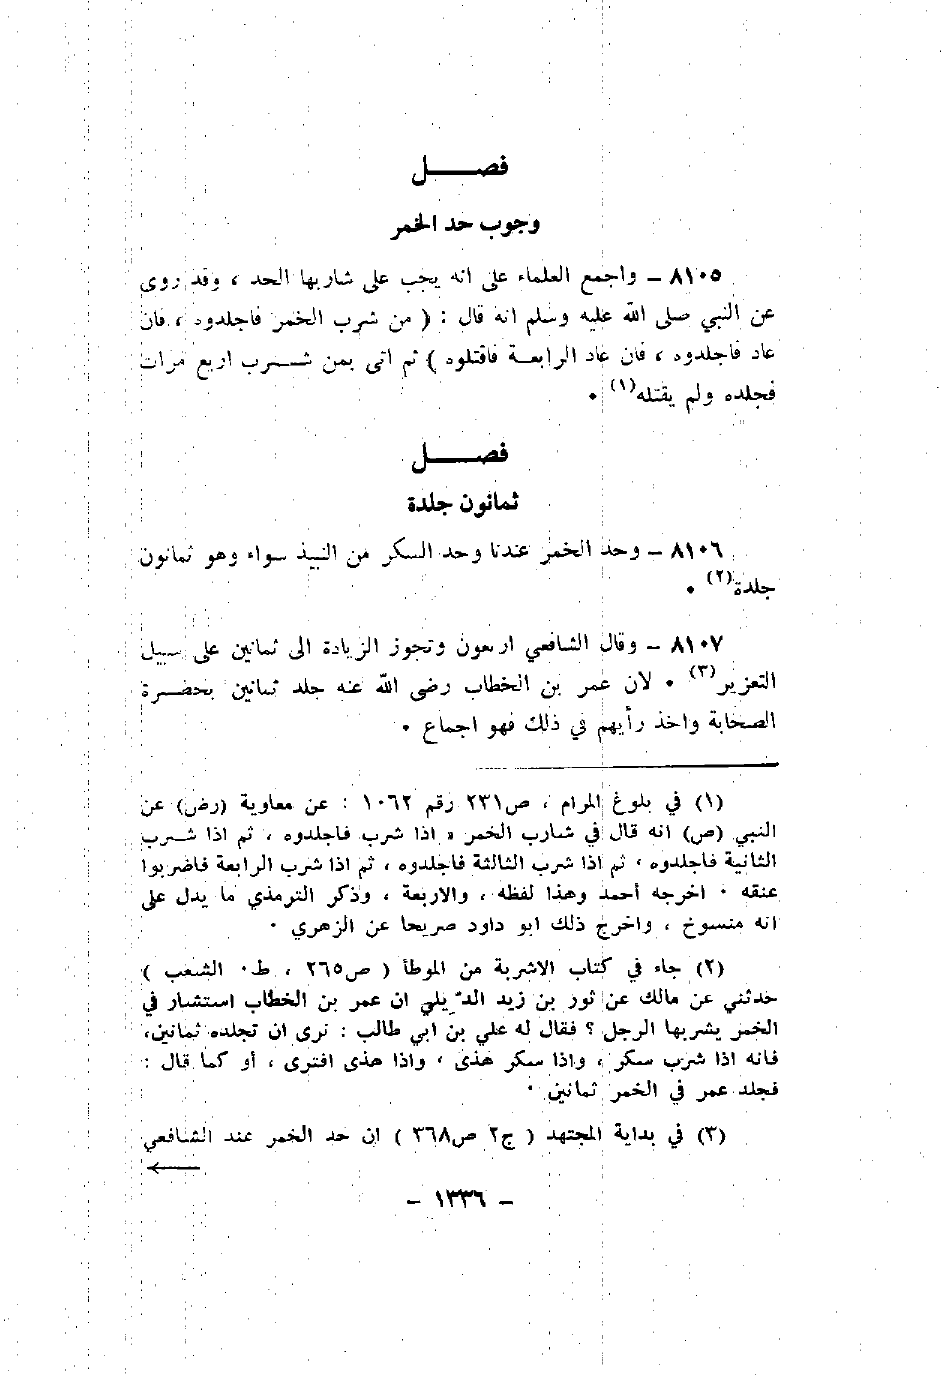 فصـــــل
وجوب حد الخمر
٨١٠٥ ـ واجمع العلماء على انه يجب على شاربها الحد ، وقد روى
عن النبي صلى الله عليه وسلم انه قال : ( من شرب الخمر فاجلدوه ، فان
عاد فاجلدوه ، فان عاد الرابعـة فاقتلوه ) ثم اتى بمن شـــرب اربع مرات
فجلده ولم يقتله(١) ٠
فصـــــل
ثمانون جلدة
٨١٠٦ ـ وحد الخمر عندنا وحد السكر من النبيذ سواء وهو ثمانون
جلدة(٢) ٠
٨١٠٧ ـ وقال الشافعي اربعون وتجوز الزيادة الى ثمانين على سبيل
التعزير(٣) ٠ لان عمر بن الخطاب رضى الله عنه جلد ثمانين بحضـرة
الصحابة واخذ رأيهم في ذلك فهو اجماع ٠
(١) في بلوغ المرام ، ص٢٣١ رقم ١٠٦٢ : عن معاوية (رض) عن
النبي (ص) انه قال في شارب الخمر « اذا شرب فاجلدوه ، ثم اذا شـرب
الثانية فاجلدوه ، ثم اذا شرب الثالثة فاجلدوه ، ثم اذا شرب الرابعة فاضربوا
عنقه ٠ اخرجه أحمد وهذا لفظه ، والاربعة ، وذكر الترمذي ما يدل على
انه منسوخ ، واخرج ذلك ابو داود صريحا عن الزهري ٠
(٢) جاء في كتاب الاشربة من الموطأ ( ص٢٦٥ ، ط٠ الشعب )
حدثني عن مالك عن ثور بن زيد الدّيلي ان عمر بن الخطاب استشار في
الخمر يشربها الرجل ؟ فقال له علي بن ابي طالب : نرى ان تجلده ثمانين،
فانه اذا شرب سكر ، واذا سكر هذى ، واذا هذى افترى ، أو كما قال :
فجلد عمر في الخمر ثمانين ٠
(٣) في بداية المجتهد ( ج٢ ص٣٦٨ ) ان حد الخمر عند الشافعي
ـ ١٣٣٦ ـ